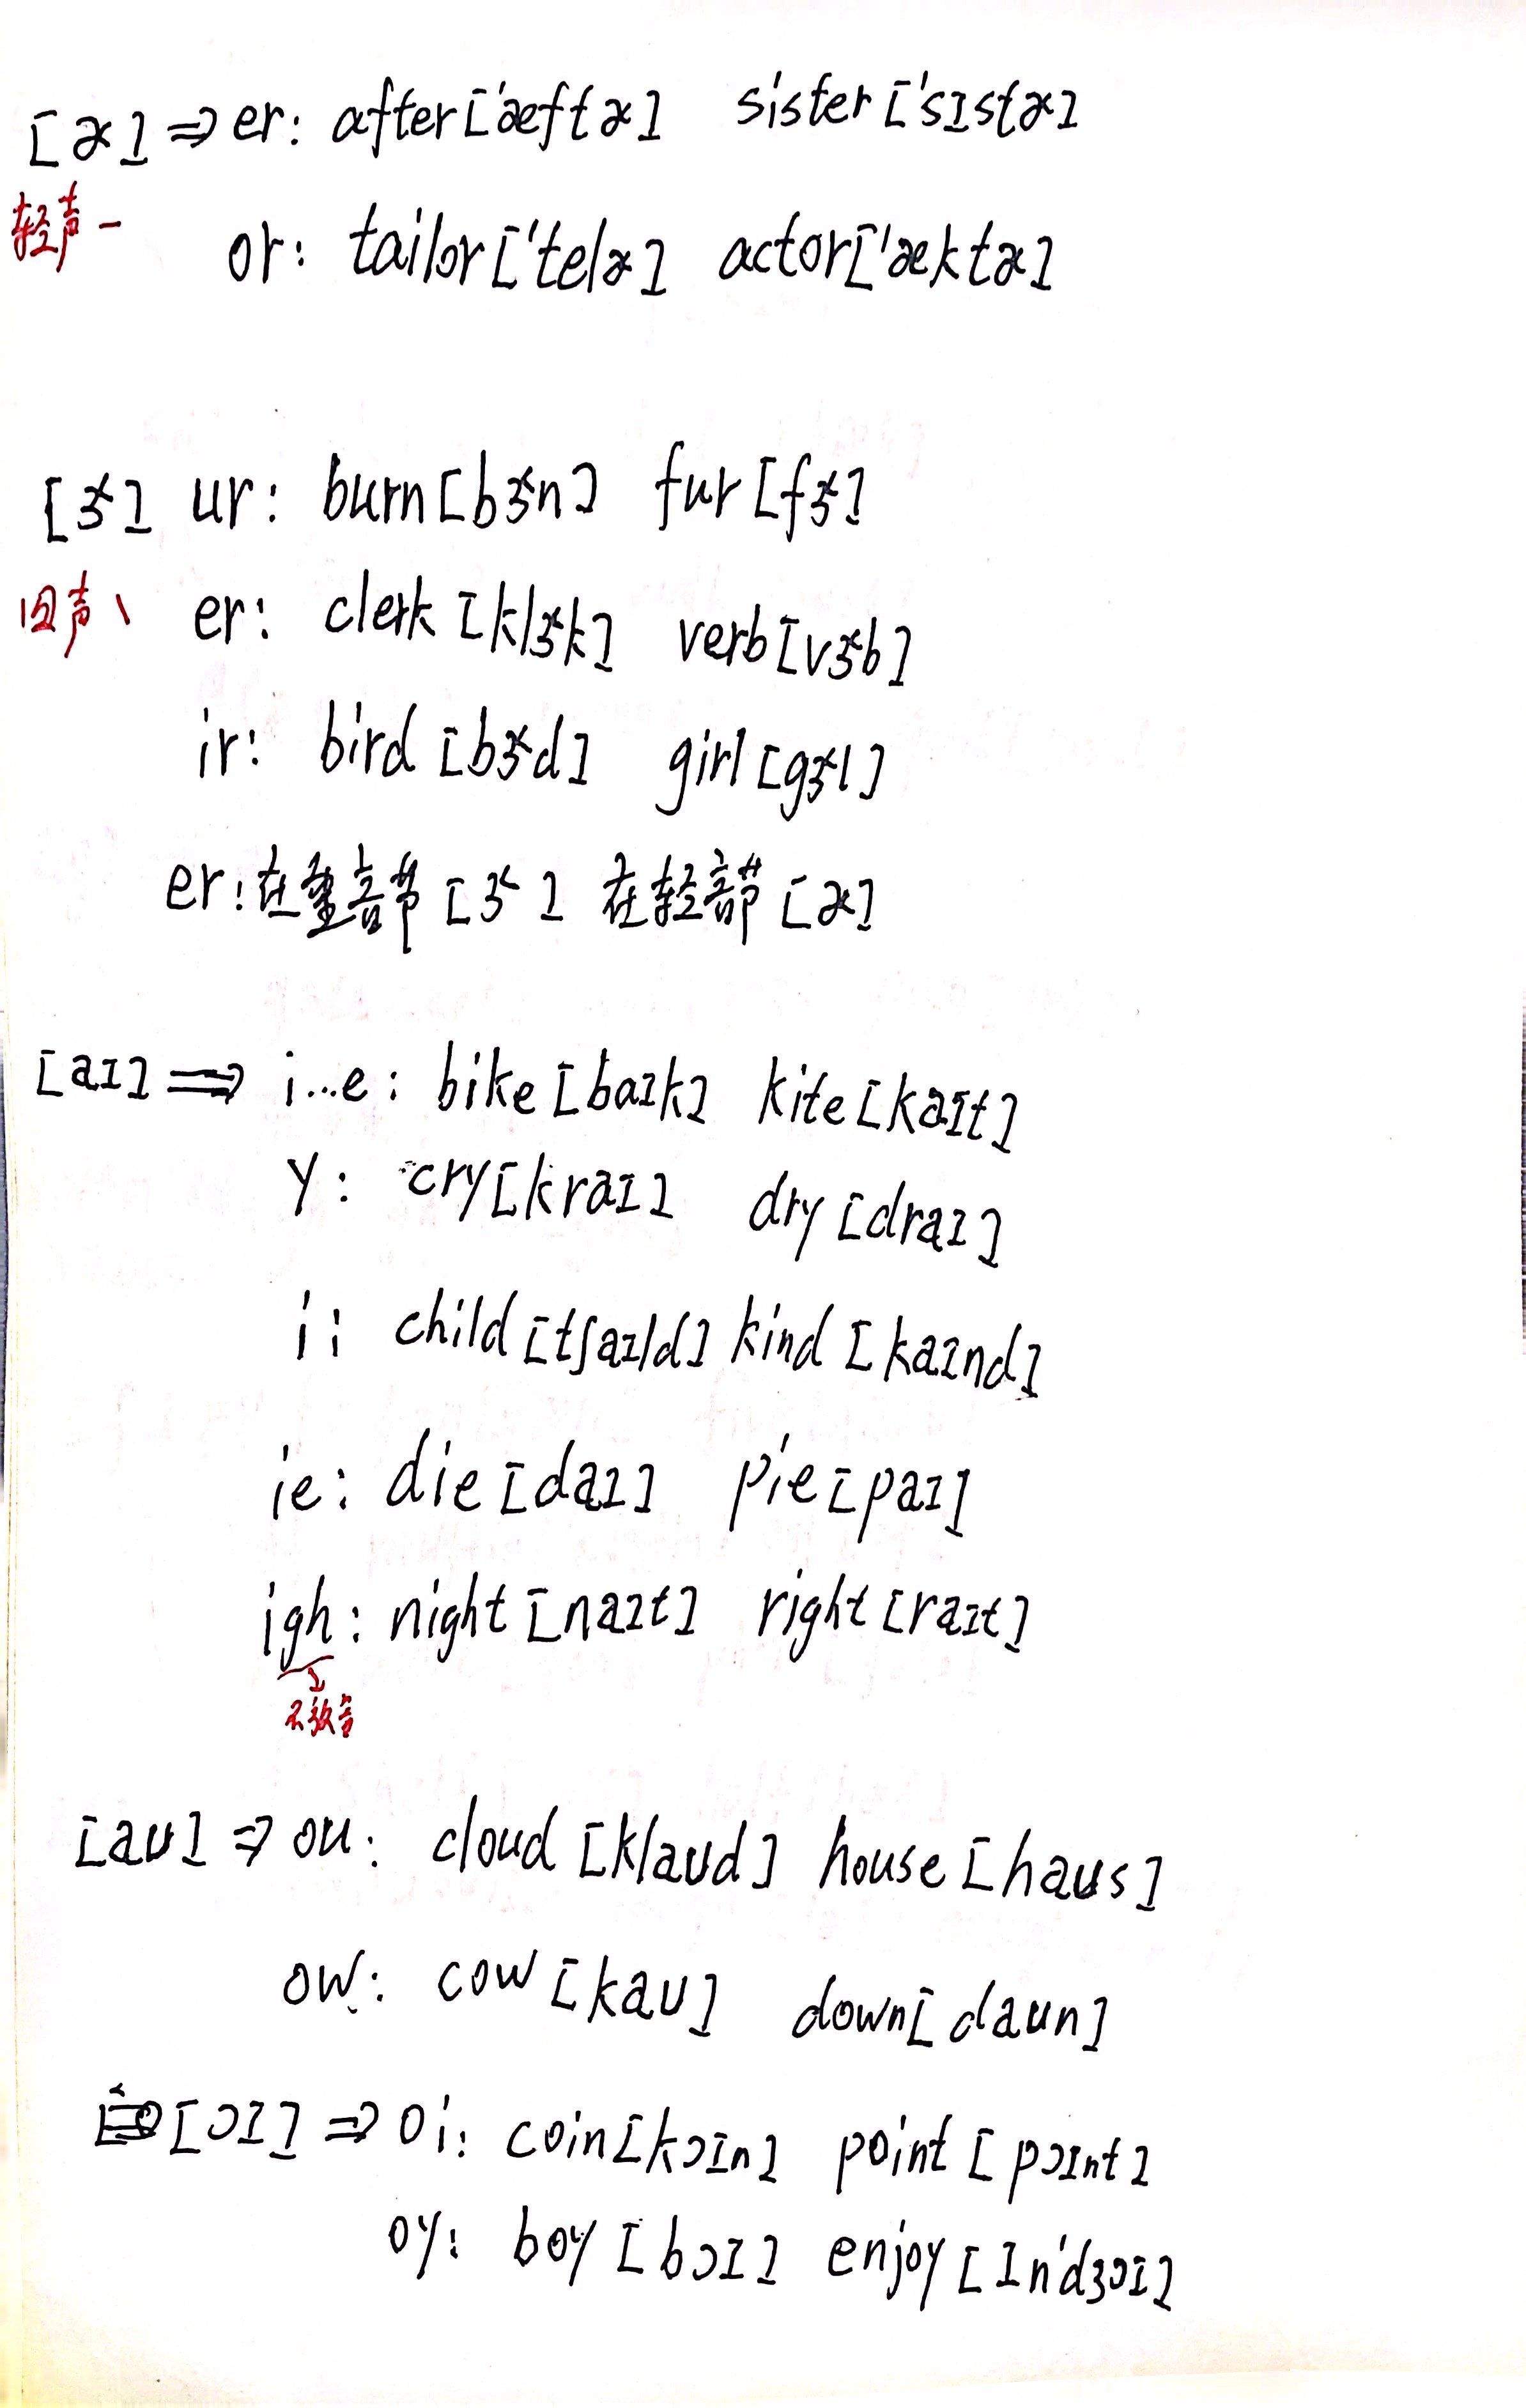 [ɚ] ⇒ er: after['æftɚ] sister['sɪstɚ]
轻声一
or: tailor['telɚ] actor['æktɚ]
[ɝ] ur: burn[bɝn] fur[fɝ]
四声丶 er: clerk [klɝk] verb[vɝb]
ir: bird [bɝd] girl[gɝl]
er:在重音节[ɝ] 在轻音节[ɚ]
[aɪ] ⇒ i...e: bike[baɪk] kite[kaɪt]
y: cry[kraɪ] dry[draɪ]
i: child[tʃaɪld] kind[kaɪnd]
ie: die[daɪ] pie[paɪ]
igh: night[naɪt] right[raɪt]
不发音
[aʊ] ⇒ ou: cloud [klaʊd] house[haʊs]
ow: cow[kaʊ] down[daʊn]
[ɔɪ] ⇒ oi: coin[kɔɪn] point[pɔɪnt]
oy: boy[bɔɪ] enjoy[ɪn'dʒɔɪ]